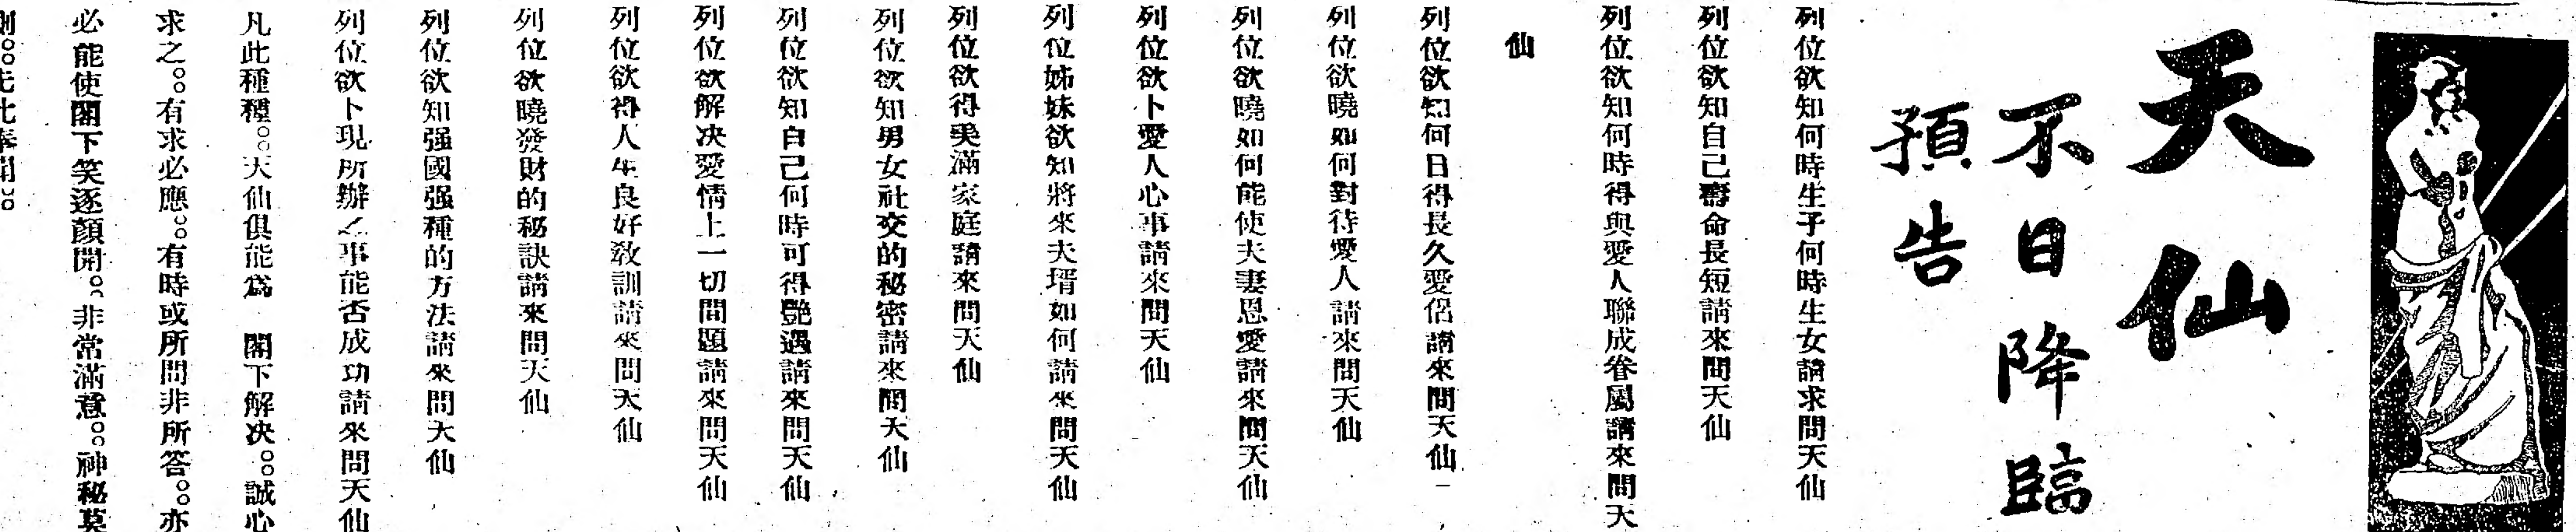 天仙
不日降臨
預告
列位欲知何時生子何時生女請求問天仙
列位欲知自己壽命長短請來問天仙
列位欲知何時得與愛人聯成眷屬請來問天
仙
列位欲知何日得長久愛侶請來問天仙
列位欲曉如何對待愛人請來問天仙
列位欲曉如何能使夫妻恩愛請來問天仙
列位欲卜愛人心事請來問天仙
列位姊妹欲知將來夫壻如何請來問天仙
列位欲得美滿家庭請來問天仙
列位欲知男女社交的秘密請來問天仙
列位欲知自己何時可得艷遇請來問天仙
列位欲解决愛情上一切問題請來問天仙
列位欲得人生良好敎訓請來問天仙
列位欲曉發財的秘訣請來問天仙
列位欲知强國强種的方法請來問天仙
列位欲卜現所辦之事能否成功請來問天仙
凡此種種。。天仙俱能爲 閣下解决。。誠心
求之。。有求必應。。有時或所問非所答。。亦
必能使閣下笑逐顏開。。非常滿意。。神秘莫
測。。先此奉聞。。